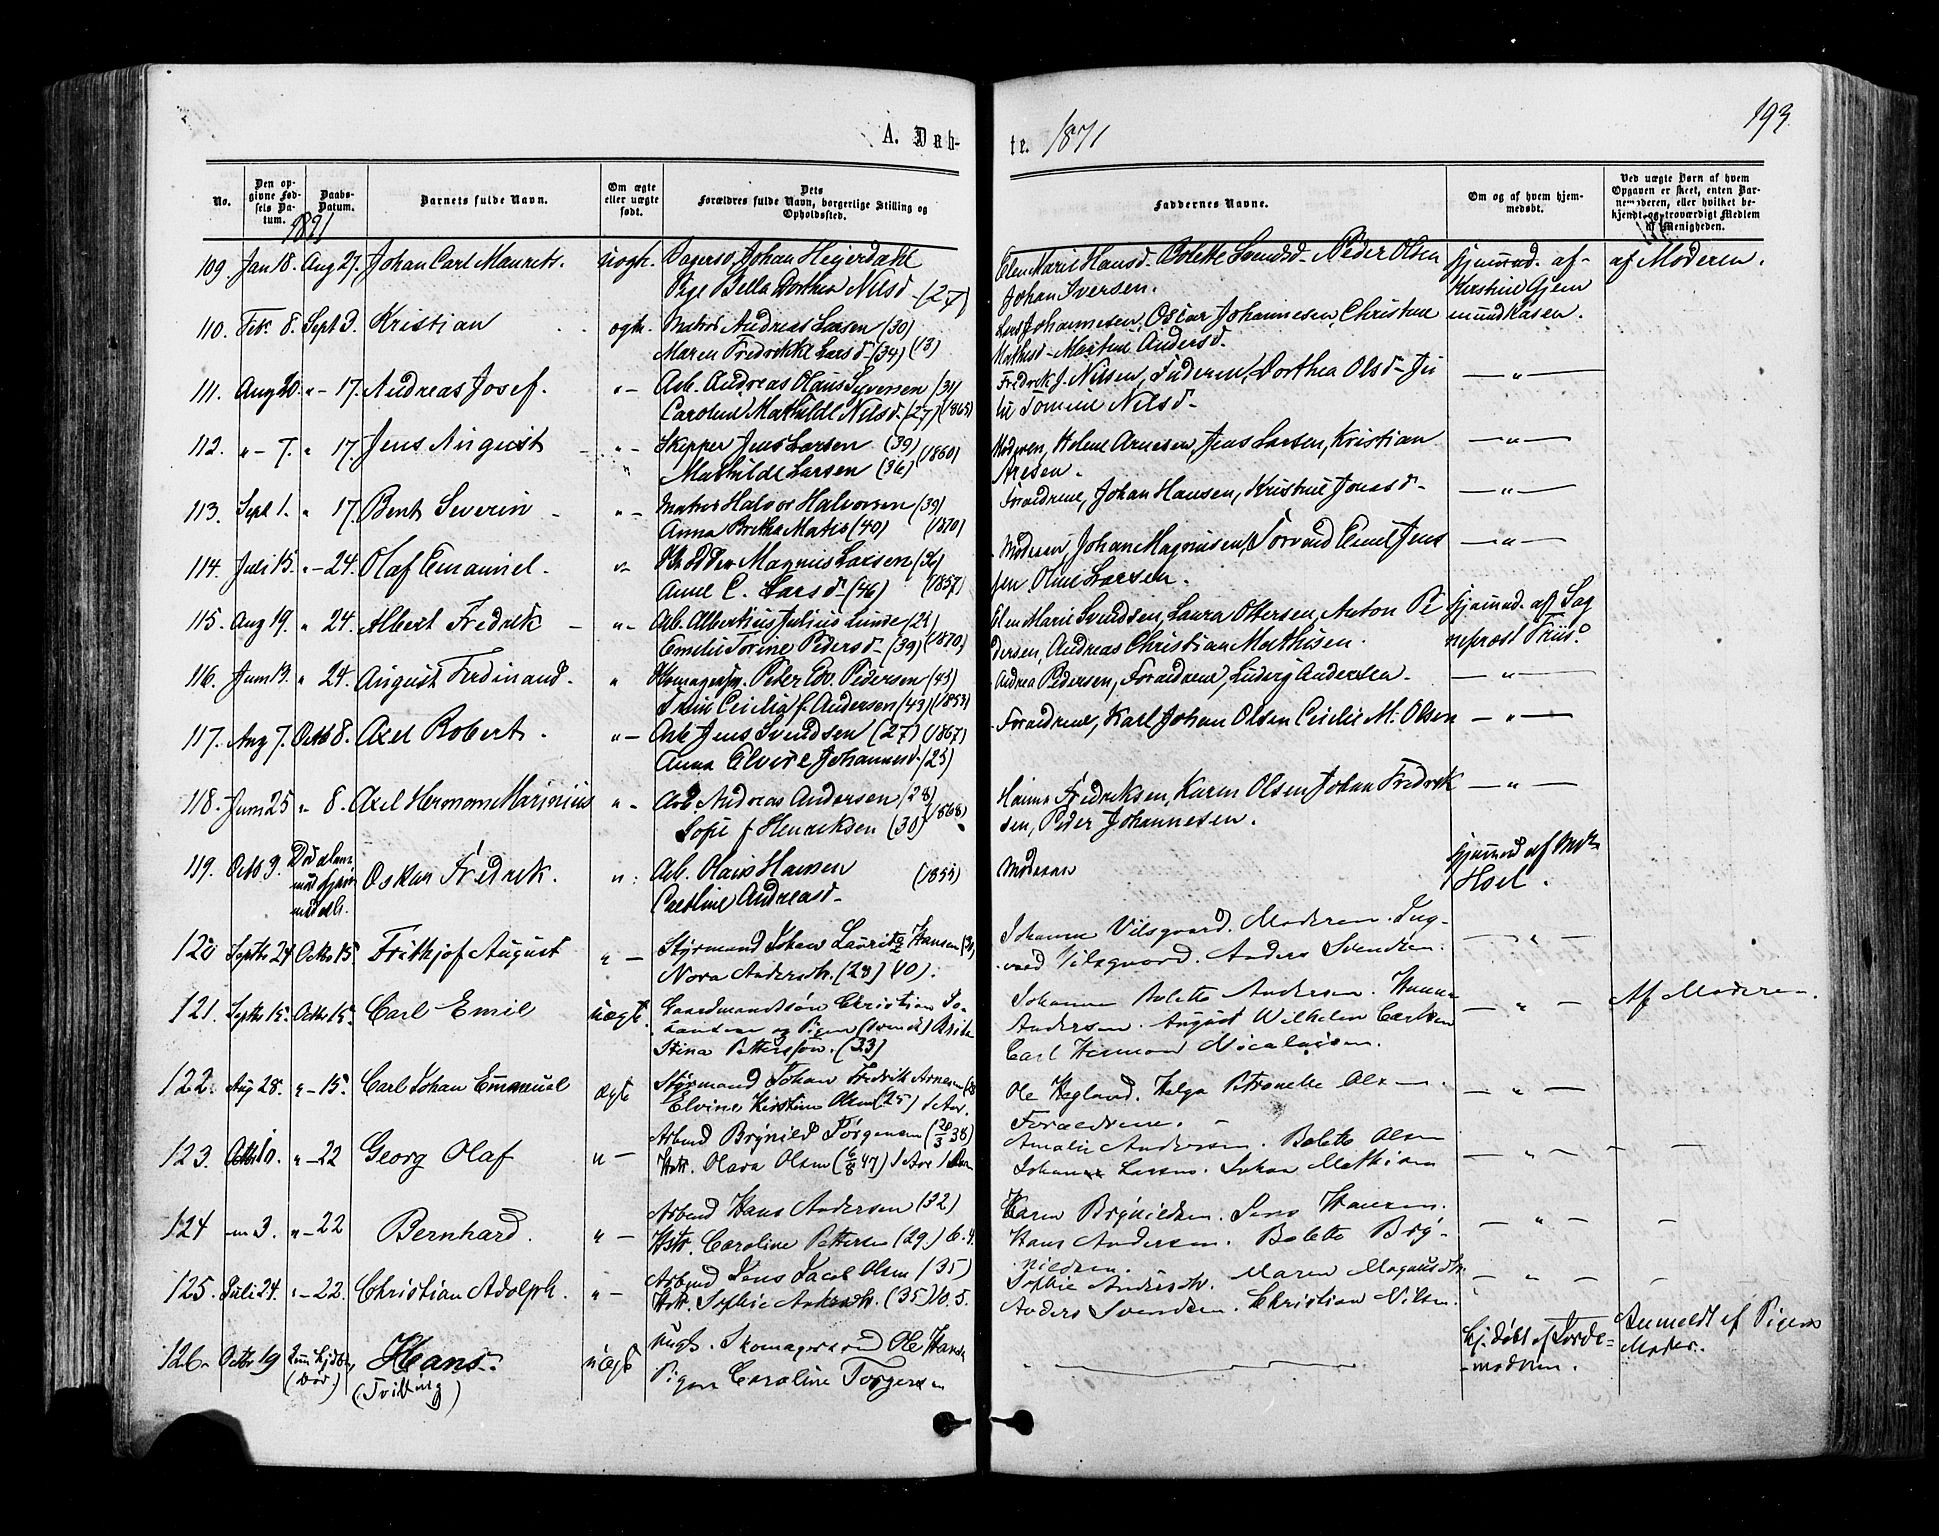 193.
A. Døb-
te. 1871
No.
Den op-
givne Fød-
sels Da-
tum.
Daabs-
Datum.
Barnets fulde Navn.
Om ægte
eller uægte
født.
Dets
Forældres fulde Navn, borgerlige Stilling og
Opholdssted.
Faddernes Navne.
Om og af hvem hjem-
medøbt.
Ved uægte Børn af hvem
Opgaven er skeet, enten Bar-
nemoderen, eller hvilket be-
kjendt og troværdigt Medlem
af Menigheden.
1871
109. Jan 18. Aug 27. Johan Carl Mauretz. uægte. Johan Heyerdahl
Pige Bella Dorthea Nilsd (27)
Elen Marie Hansd. Bolette Svendsd. Peder Olsen
Johan Iversen.
hjemmed. af
Kirstine Gjem
mundkasen.
af Moderen.
110. Feb 8. Sept 3. Kristian ægte. Matros Andreas Larsen (30)
Maren Fredrikke Larsd (34) (13)
Lars Johannesen, Oscar Johannesen, Christine
Mathisd Andersd.
111. Aug 20. " - 17. Andreas Josef. " - Arb. Andreas Olaus Syversen (31)
Caroline Mathilde Nilsd. (27) (1865)
Fredrik J. Nilsen, Faderen, Dorthea Olsd Ju
lie Tomine Nilsd - " -
112. " - 7. " 17. Jens August " - Skipper Jens Larsen (39)
Mathilde Larsen (36) (1860)
Moderen, Helene Arnesen, Jens Larsen, Kristian
Aresen. - " -
113. Sept 1. " 17. Bent Severin " - Matros Halvor Halvorsen (39)
Anna Bretha Matis (40) (1870)
Forældrene, Johan Hansen, Kristine Jonasd - " -
114. Juli 15. " - 24. Olaf Emanuel. " - Magnus Larsen
Anne C. Larsd (46) (1857)
Moderen, Johan Magnusen, Emil Jens
sen Oline Larsen. - " -
115. Aug 19. " 24. Albert Fredrik " - Arb. Albertius Julius Lunde (21)
Emilie Torine Pedersd (39) (1870)
Elen Marie Svendsen, Laura Ottersen, Anton Pe
dersen, Andreas Christian Mathisen.
hjemmed. af Sog
nepræst Friis.
116. Juni 13. " 24. August Ferdinand. " Peter Edv. Pedersen (45)
Trine Cecilia f. Andersen (43) (1853)
Andrea Pedersen, Forældrene, Ludvig Andersen. - " -
117. Aug 7. Octb 8. Axel Robert. " - Arb Jens Svendsen (27) (1867)
Anna Elvire Johannesd. (25)
Forældrene, Karl Johan Olsen Cecilie M. Olsen - " -
118. Juni 25 " 8. Axel Hermom Marinius " - Arb Andreas Andersen (28)
Sofie f Henriksen (30) (1868)
Hanna Fredriksen, Karen Olsen Johan Fredrik
sen, Peder Johannesen. - " -
119. Octb 3. Oskar Fredrik. " Arb. Olaus Hansen
Caroline Andreasd. (1855)
Moderen
hjemmed af
Hoel.
120 Septbr 24 Octbr 15. Frithjof August " - Styrmand Johan Lauritz Hansen
Nora Andersdtr. (23) (70).
Johanna Vilsgaard. Moderen. Ing-
vard Vilsgaard. Anders Svendsen. - " -
121. Septbr 15. Octbr 15. Carl Emil uægte. Gaardmandssøn Christian Jo-
hansen og Pigen (svensk) Brita
Stina Pettersson. (33)
Johanna Bolette Andersen. Hanna
Andersen. August Wilhelm Carlsen
Carl Herman Nicolaisen. - " - Af Moderen.
122. Aug 28. " - 15. Carl Johan Emanuel ægte Styrmand Johan Fredrik Arnesen
Elvine Kirstine Olsen (25) 1 Aar.
Ole Hegland. Helga Petronelle Olsen.
Forældrene. - " -
123. Octbr 10. " - 22 Georg Olaf " - Arbmd Brynild Jørgensen (20/3 38)
Hstr. Olava Olsen (6/8 47) 1 Aar 1 Barn
Amalie Andersen. Bolette Olsen
Johanne Larsen. Johan Mathisen - " - -
124 " 3. " - 22 Bernhard. " - Arbmd Hans Andersen (32)
Hstr. Caroline Pettersen (29.) 6. 4.
Karen Brynildsen. Jens Hansen.
Hans Andersen. Bolette Bry-
nildsen. - " - -
125. Juli 24. " - 22. Christian Adolph. " - Arbmd Jens Jacob Olsen (35)
Hstr. Sophie Andersdtr. (35) 10. 5.
Sophie Andersdtr. Maren Magnusdtr.
Anders Svendsen. Christian Nilsen. - " - -
126. Octbr 19 (død.) Hans. uægte ugft. Skomagersvend Ole Hansen
(Tvilling) Pigen Caroline Torgersen
hj. døbt af Jorde-
moderen.
Anmeldt af Pigens
Moder.